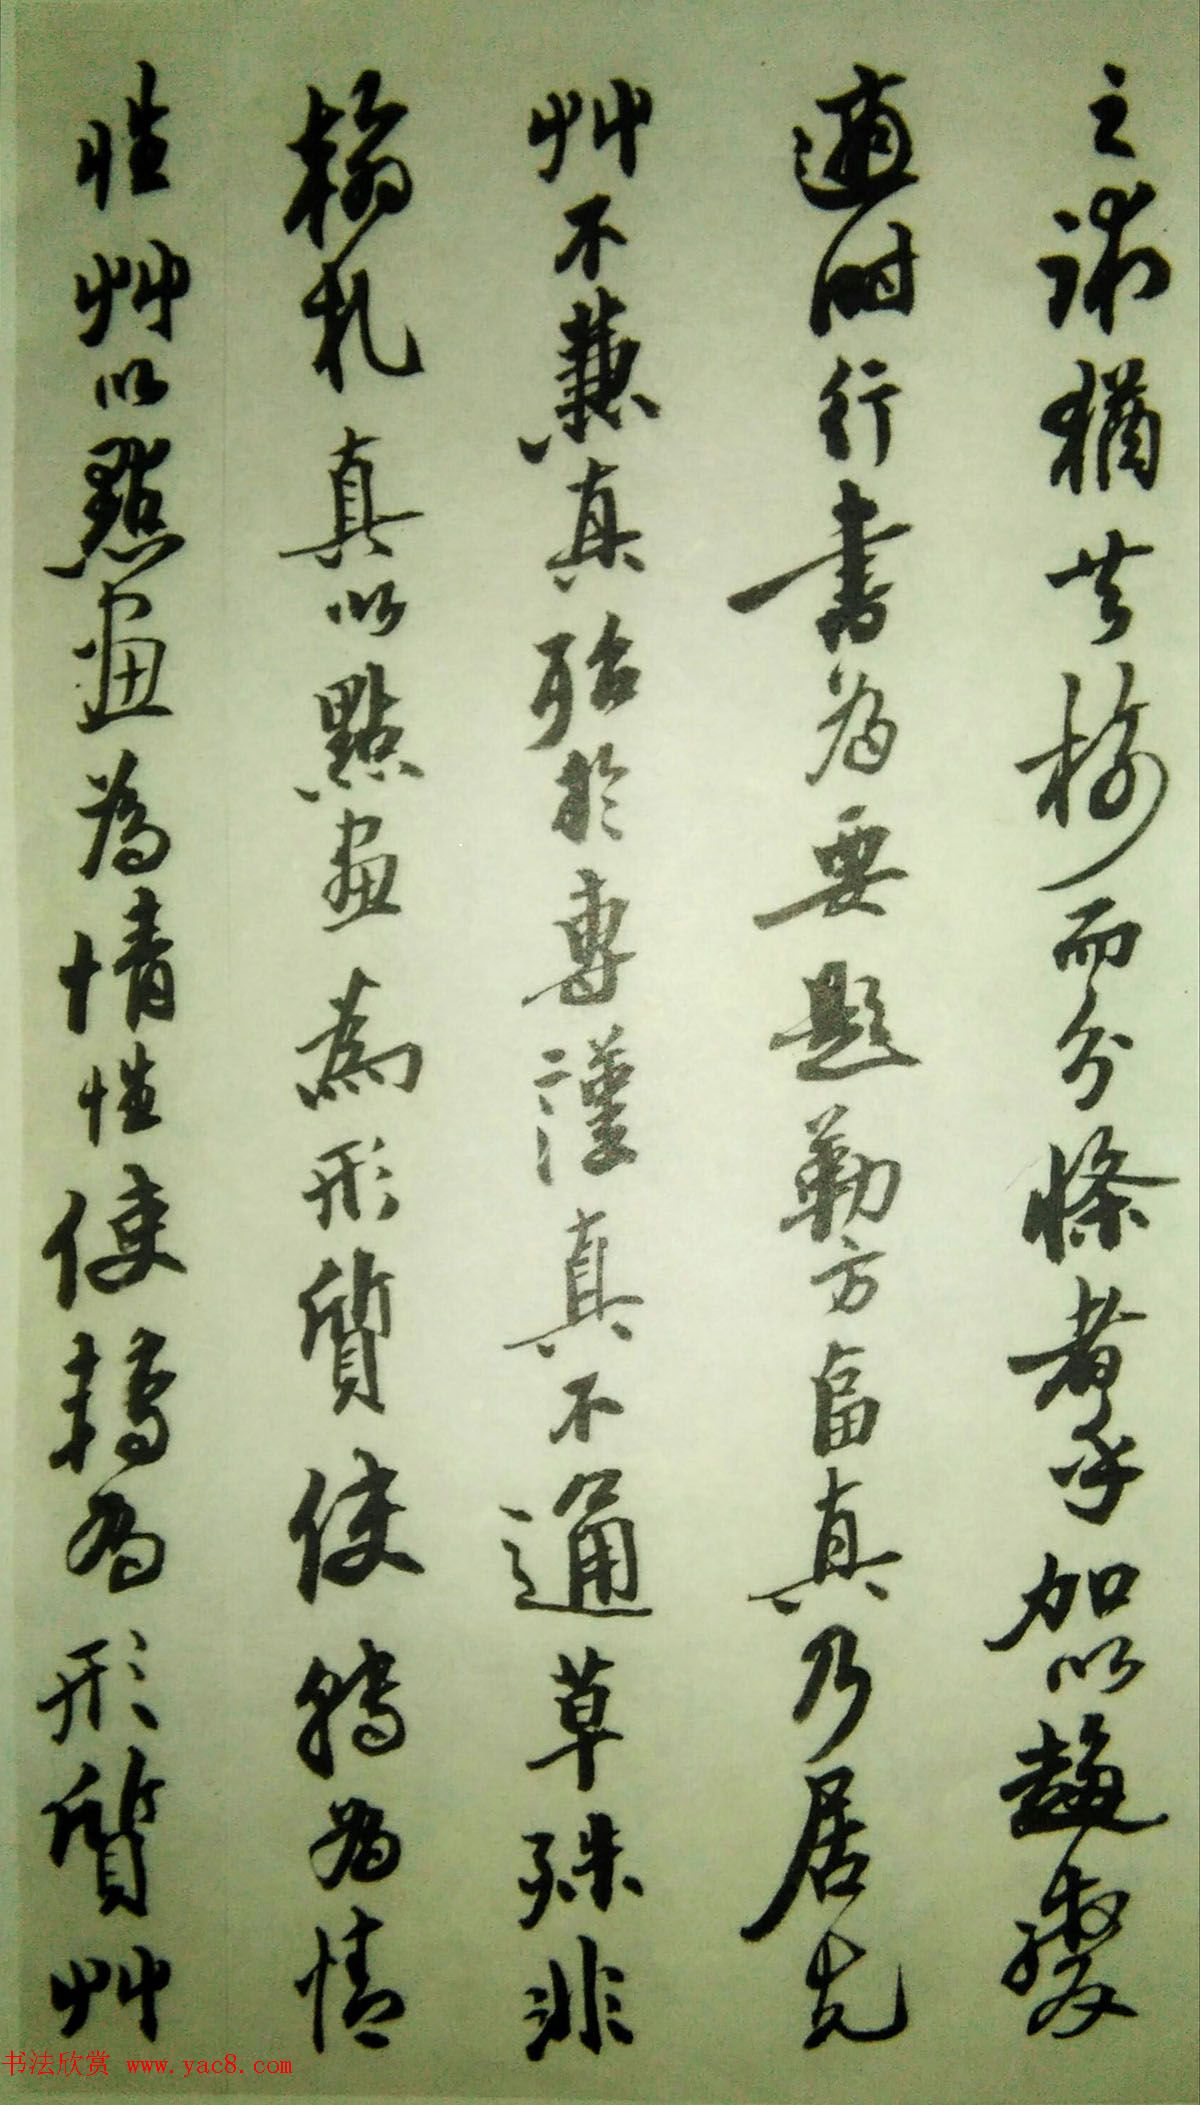 之誅猶共樹而分條者乎加以趨變
適時行書為要題勒方畐真乃居先
艸不兼真殆於專謹真不通草殊非
翰札真以點畫為形質使轉為情
性艸以點畫為情性使轉為形質艸
书法欣赏 www.yac8.com